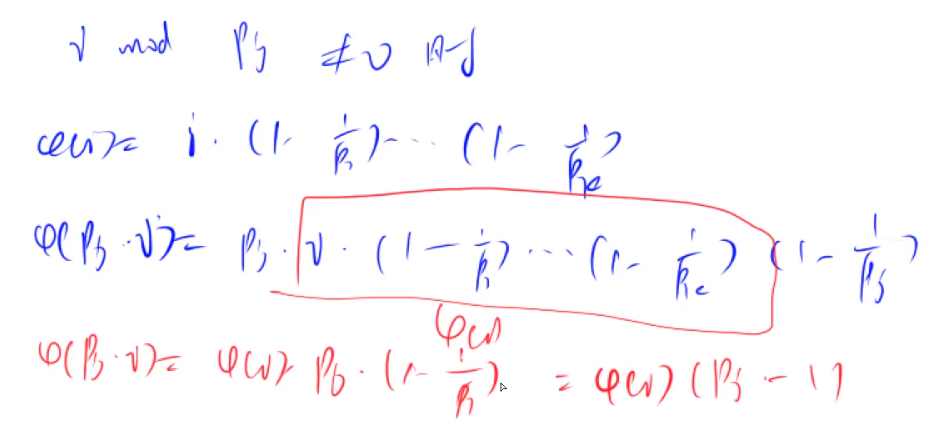 i mod Pj ≠ 0 时
φ(i) = i · (1 - 1/P1) ··· (1 - 1/Pk)
φ(Pj · i) = Pj · i · (1 - 1/P1) ··· (1 - 1/Pk) (1 - 1/Pj)
φ(i)
φ(Pj · i) = φ(i) · Pj · (1 - 1/Pj) = φ(i) (Pj - 1)